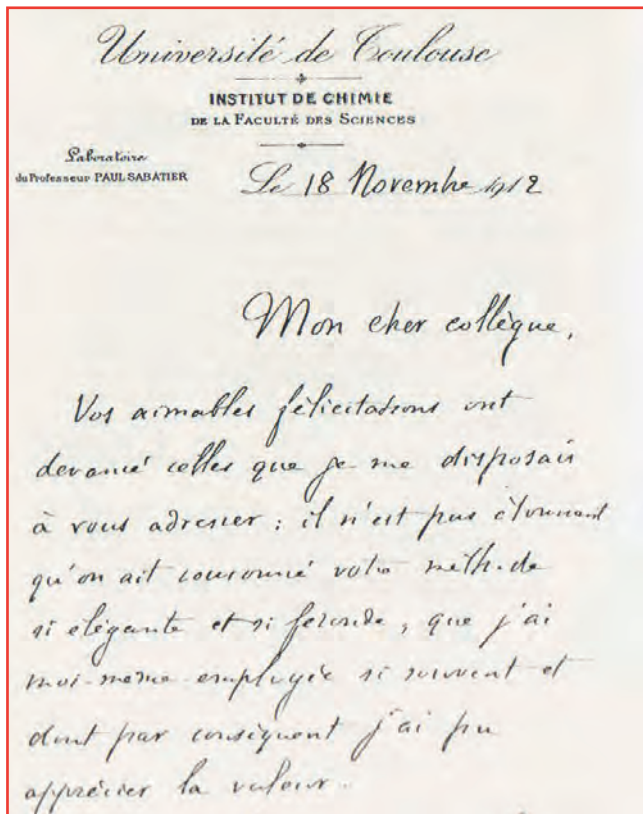 Université de Toulouse
INSTITUT DE CHIMIE
DE LA FACULTÉ DES SCIENCES
Laboratoire
du Professeur PAUL SABATIER
Le 18 Novembre 1912
Mon cher collègue,
Vos aimables félicitations ont
devancé celles que je me disposais
à vous adresser : il n'est pas étonnant
qu'on ait couronné votre méthode
si élégante et si féconde, que j'ai
moi-même employée si souvent et
dont par conséquent j'ai pu
apprécier la valeur.